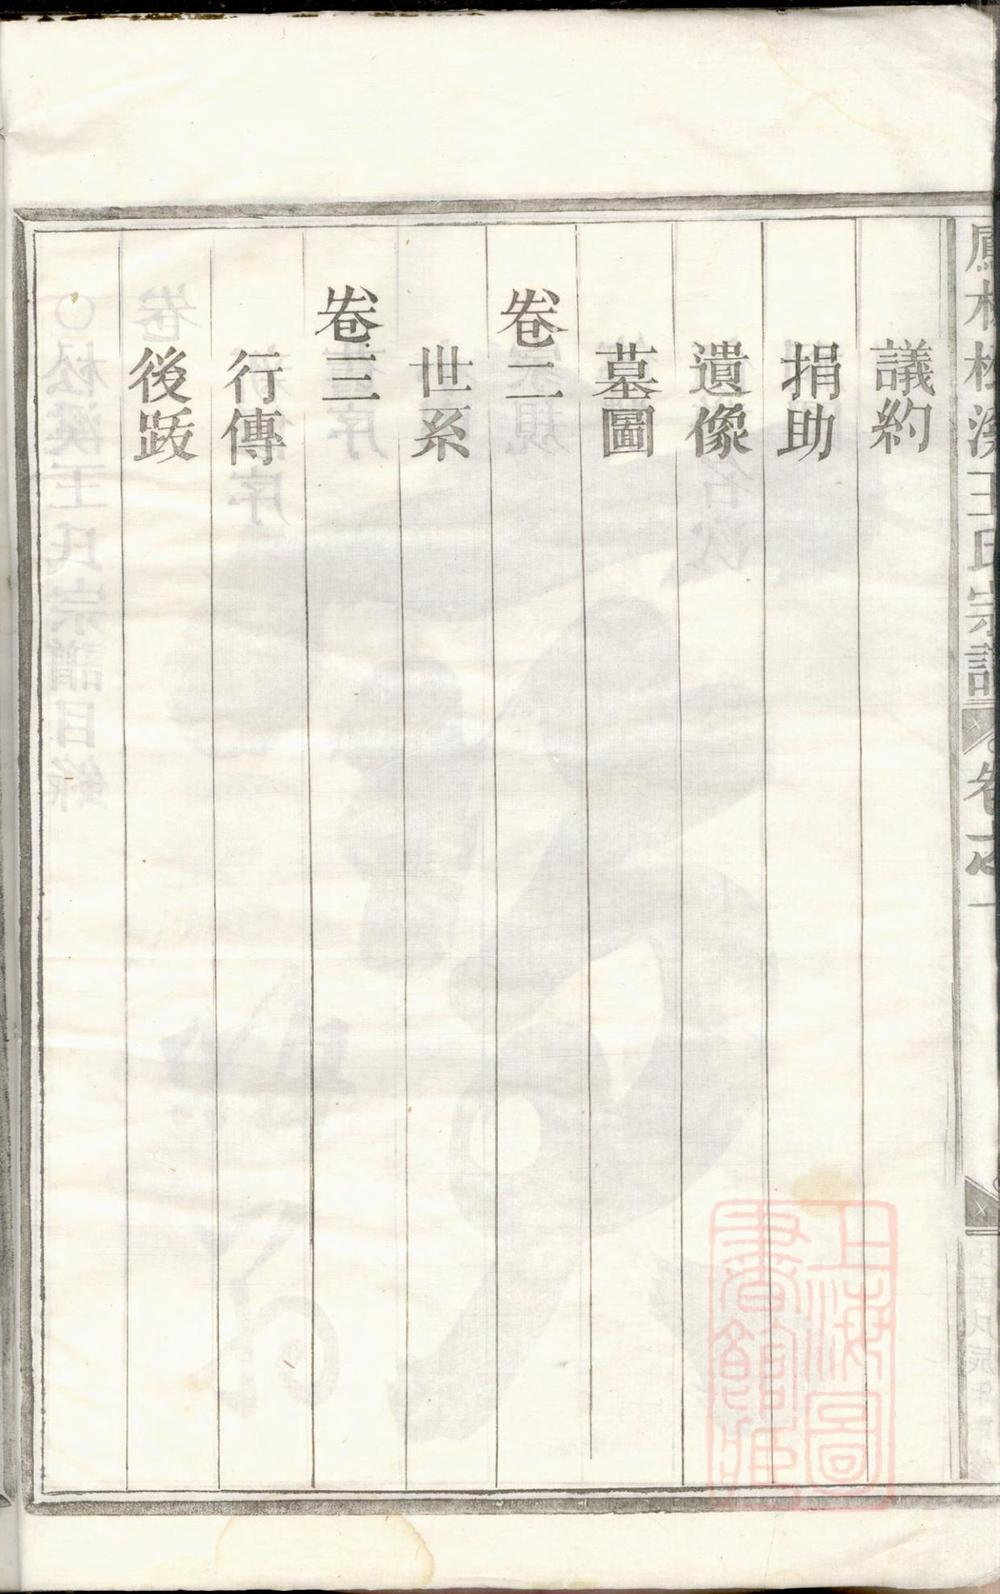 議約
捐助
遺像
墓圖
卷二
世系
卷三
行傳
後跋
鳳林松溪王氏宗譜
卷之一
上海圖書館藏